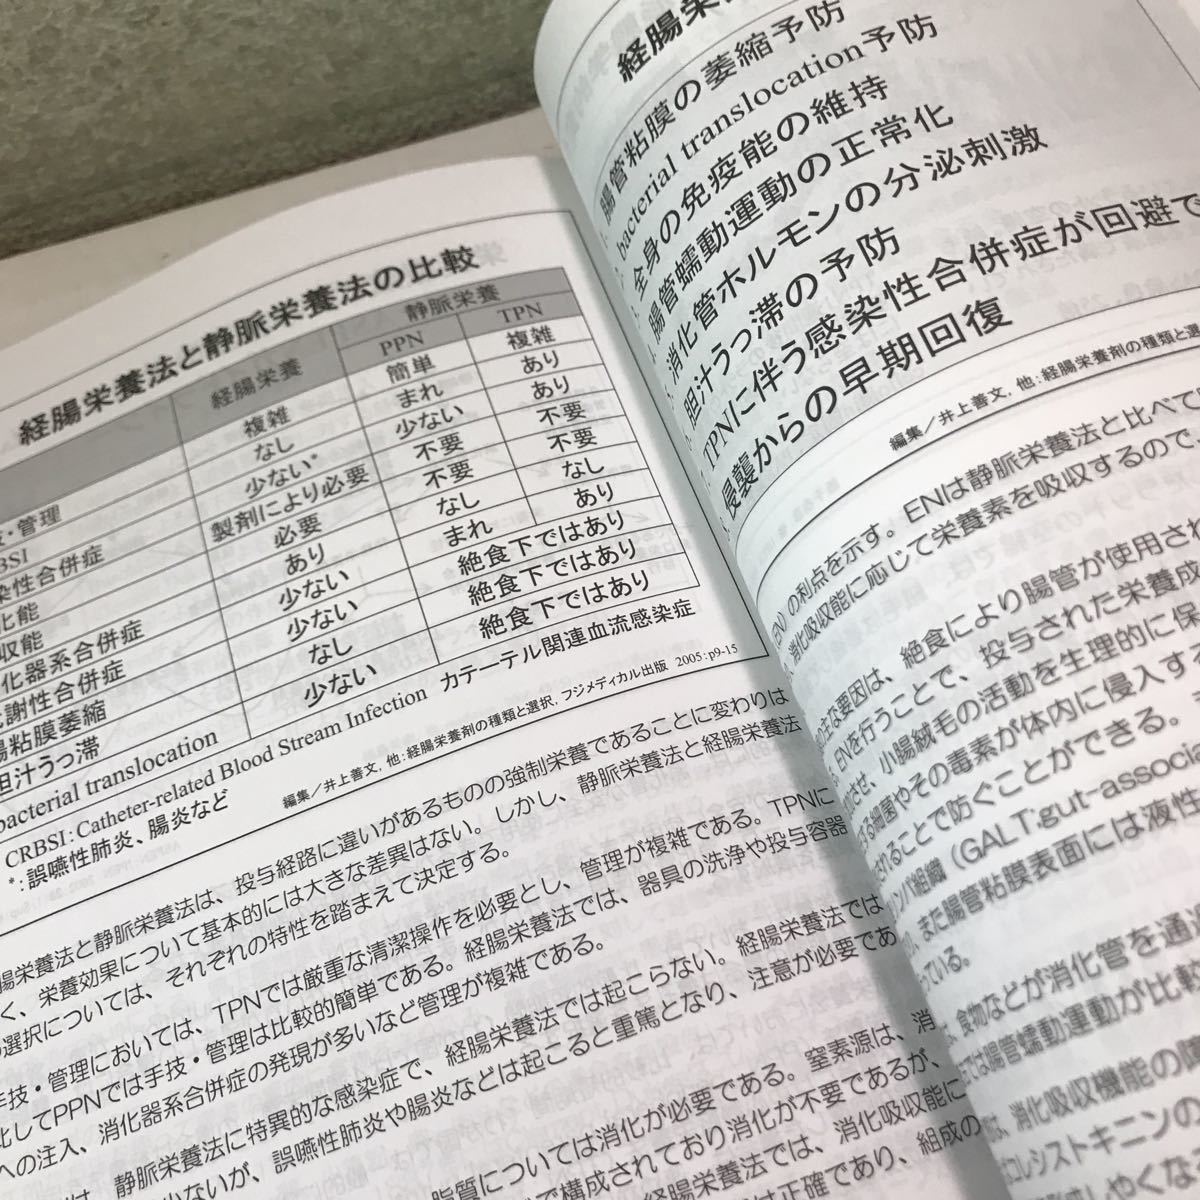 経腸栄養法と静脈栄養法の比較
経腸栄養 静脈栄養
PPN TPN
・管理 複雑 簡単 複雑
BSI なし まれ あり
染性合併症 少ない* 少ない あり
化能 製剤により必要 不要 不要
収能 必要 不要 不要
化器系合併症 あり なし なし
謝性合併症 少ない まれ あり
腸粘膜萎縮 少ない 絶食下ではあり
胆汁うっ滞 なし 絶食下ではあり
bacterial translocation 少ない 絶食下ではあり
CRBSI:Catheter-related Blood Stream Infection カテーテル関連血流感染症
*:誤嚥性肺炎、腸炎など
編集/井上善文,他:経腸栄養剤の種類と選択,フジメディカル出版 2005:p9-15
腸栄養法と静脈栄養法は、投与経路に違いがあるものの強制栄養であることに変わりは
く、栄養効果について基本的には大きな差異はない。しかし、静脈栄養法と経腸栄養法
の選択については、それぞれの特性を踏まえて決定する。
手技・管理においては、TPNでは厳重な清潔操作を必要とし、管理が複雑である。TPNに
比してPPNでは手技・管理は比較的簡単である。経腸栄養法では、器具の洗浄や投与容器
への注入、消化器系合併症の発現が多いなど管理が複雑である。
は、静脈栄養法に特異的な感染症で、経腸栄養法では起こらない。経腸栄養法では
少ないが、誤嚥性肺炎や腸炎などは起こると重篤となり、注意が必要であ
脂質については消化が必要である。窒素源は、消
で構成されており消化が不要であるが、
経腸栄養法では、消化吸収能に
は正確であり、組成の
経腸栄
腸管粘膜の萎縮予防
bacterial translocation予防
全身の免疫能の維持
腸管蠕動運動の正常化
消化管ホルモンの分泌刺激
胆汁うっ滞の予防
TPNに伴う感染性合併症が回避で
侵襲からの早期回復
編集/井上善文,他:経腸栄養剤の種類と選
(EN)の利点を示す。ENは静脈栄養法と比べて
、消化吸収能に応じて栄養素を吸収するので、
の主な要因は、絶食により腸管が使用され
、ENを行うことで、投与された栄養成
させ、小腸絨毛の活動を生理的に保
る細菌やその毒素が体内に侵入する
されることで防ぐことができる。
リンパ組織(GALT:gut-associa
、また腸管粘膜表面には液性
っている。
は、食物などが消化管を通過
では腸管蠕動運動が比較
は、消化吸収機能の障
コレシストキニンの
しやくな